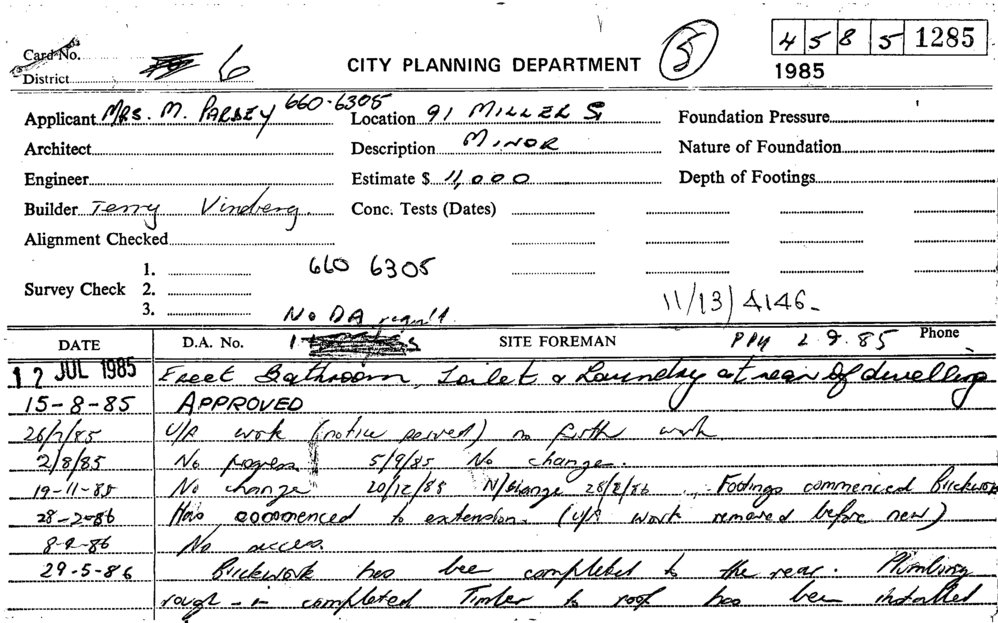 Card No.
4 5 8 5 1285
District 6 CITY PLANNING DEPARTMENT 5 1985
Applicant MRS. M. PARDEY 660-6305 Location 91 MILLER St Foundation Pressure
Architect Description MINOR Nature of Foundation
Engineer Estimate $ 11,000 Depth of Footings
Builder Terry Vineberg. Conc. Tests (Dates)
Alignment Checked
1. 660 6305
Survey Check 2.
11/13) 4146-
3. No DA
DATE D.A. No. SITE FOREMAN 2.9.85 Phone
12 JUL 1985 Erect Bathroom, Toilet & Laundry at rear of dwelling
15-8-85 APPROVED
26/7/85 U/A work (notice served) no furth work
2/8/85 No progress 5/9/85 No change.
19-11-85 No change 20/12/85 N/change 28/2/86 Footings commenced Brickwork
28-2-86 Has commenced to extension. (U/A work removed before new)
No access.
29-5-86 Brickwork has been completed to the rear. Plumbing
rough-in completed Timber to roof has been installed